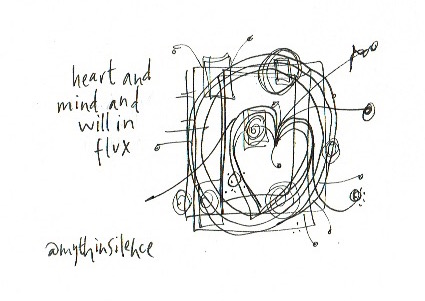 heart and
mind and
will in
flux
@mythinsilence